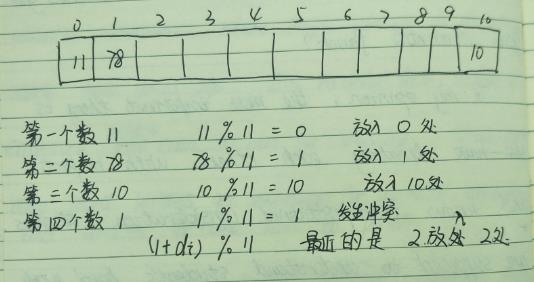 0 1 2 3 4 5 6 7 8 9 10
11 78 10
第一个数 11 11 % 11 = 0 放入 0 处
第二个数 78 78 % 11 = 1 放入 1 处
第三个数 10 10 % 11 = 10 放入 10 处
第四个数 1 1 % 11 = 1 发生冲突
(1+di) % 11 最近的是 2 放入 2处